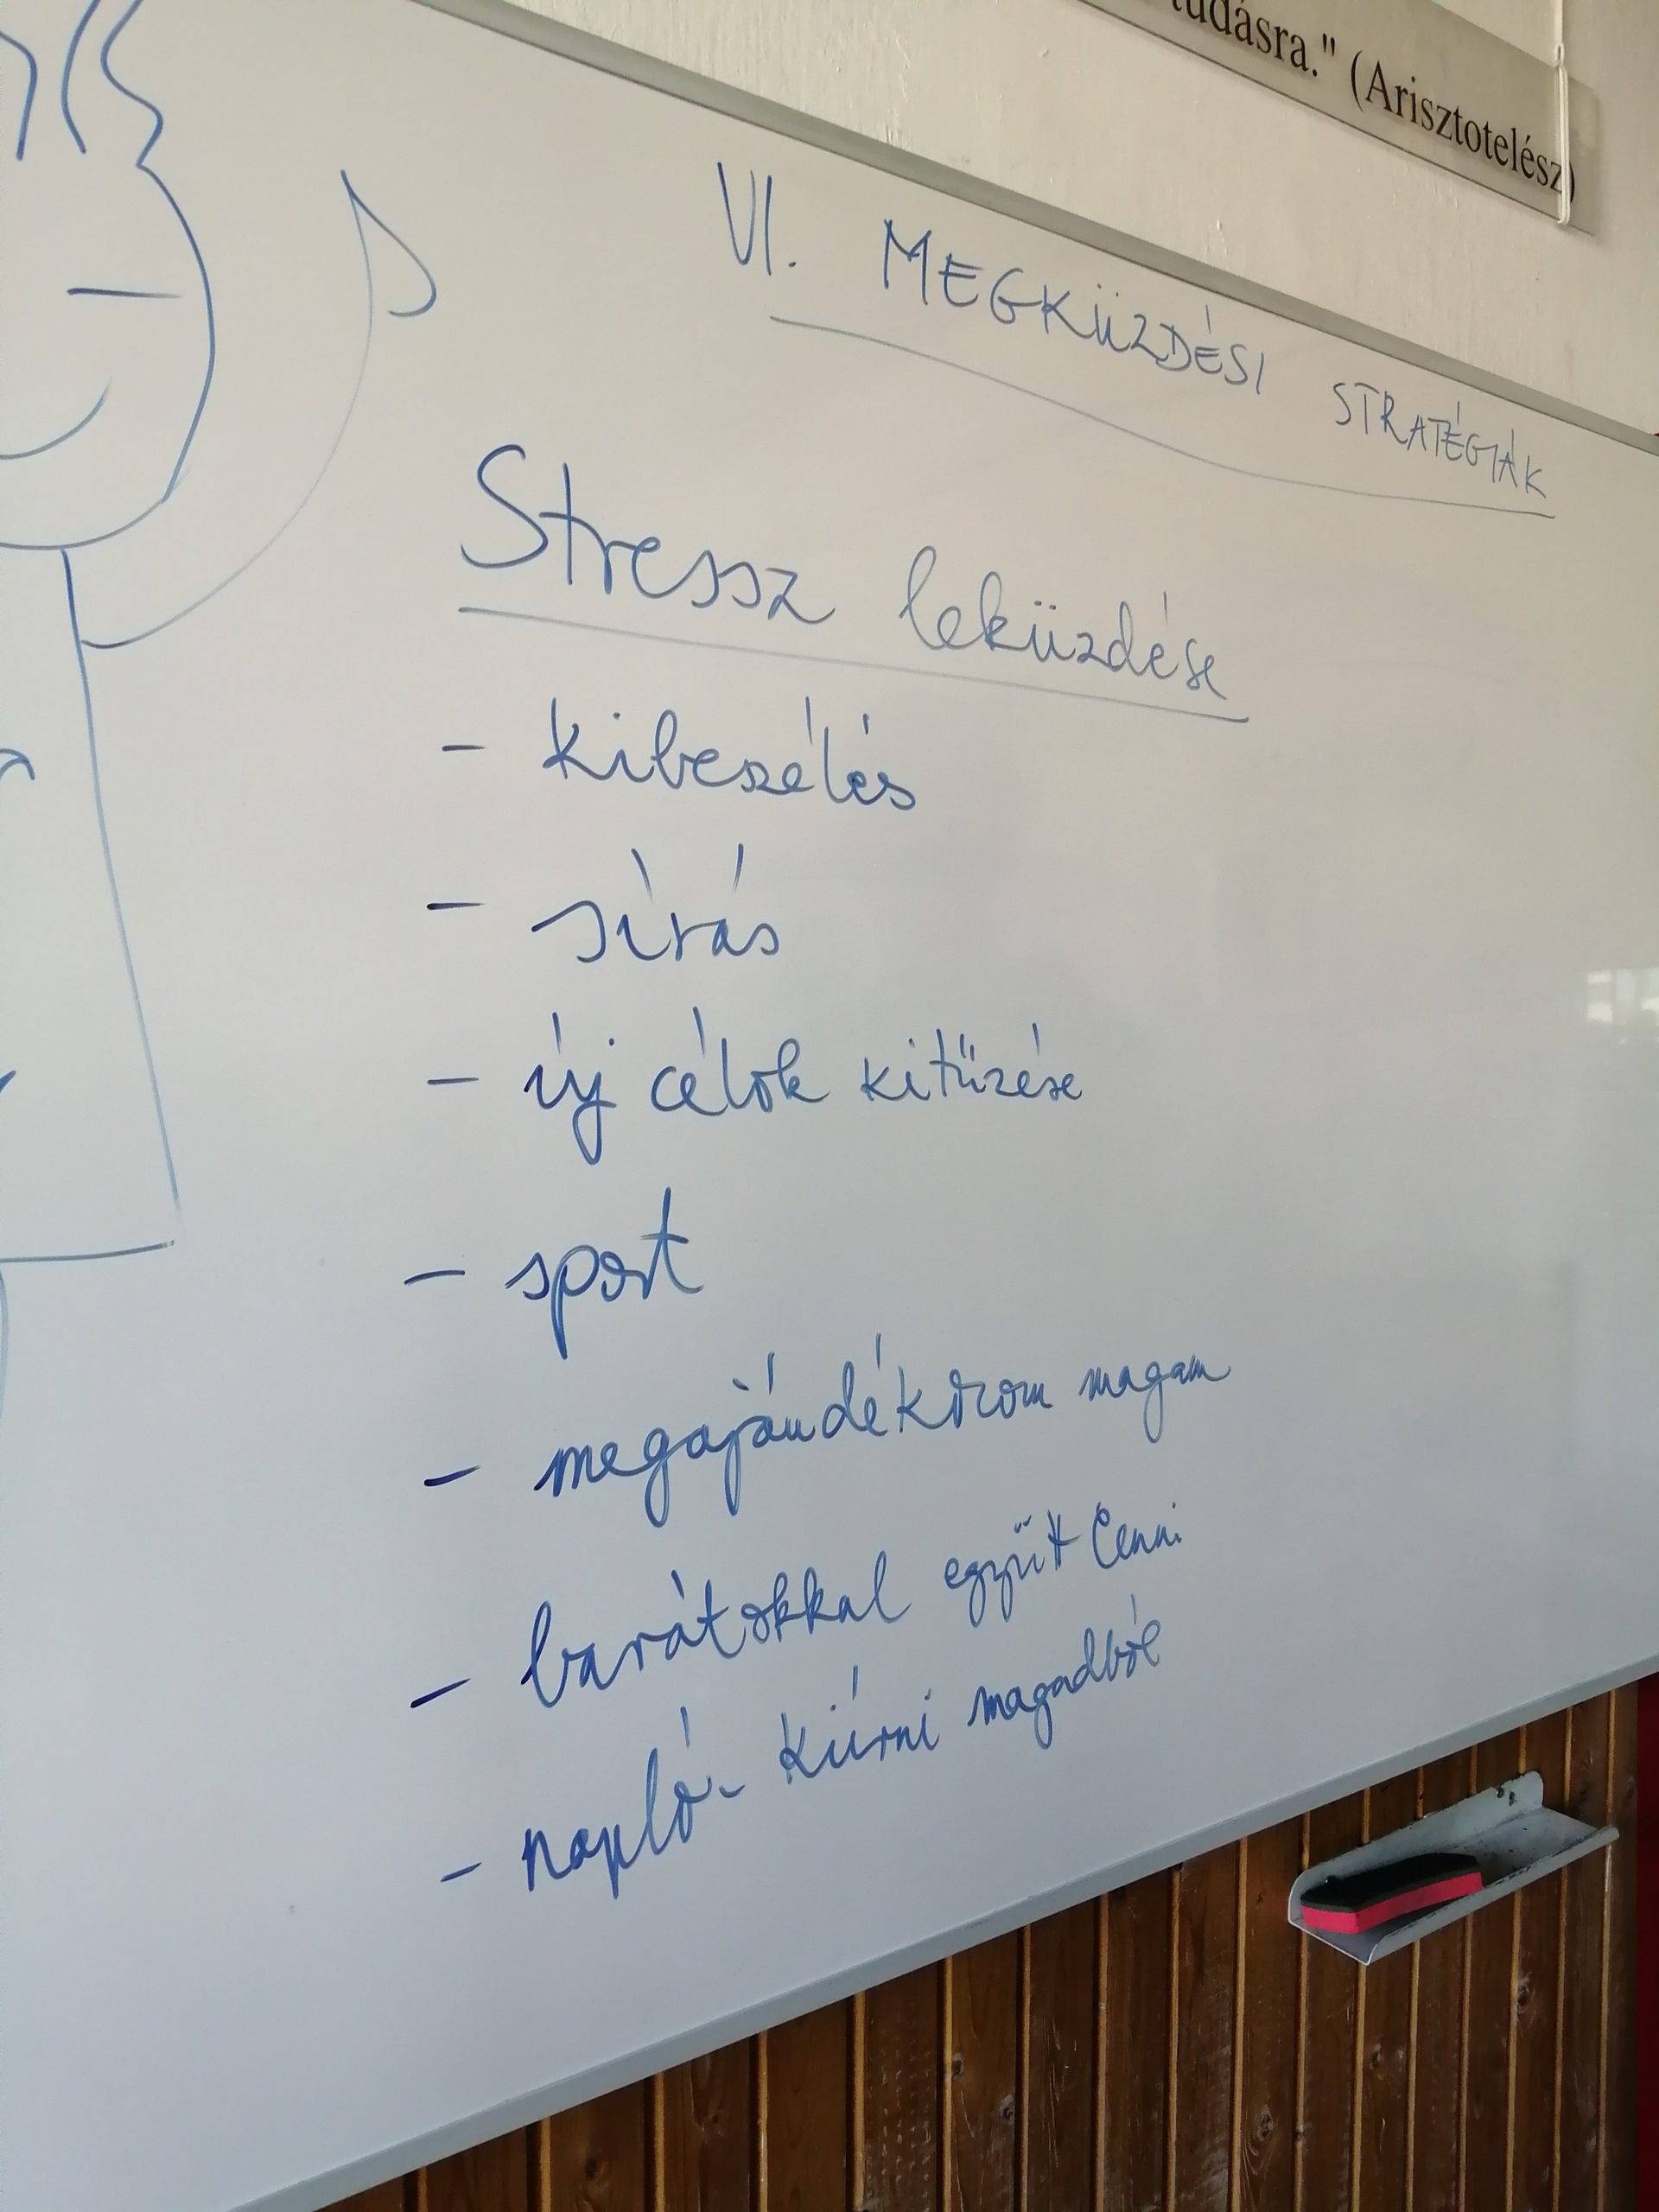 tudásra." (Arisztotelész)
VI. MEGKÜZDÉSI STRATÉGIÁK
Stressz leküzdése
- kibeszélés
- sírás
- új célok kitűzése
- sport
- megajándékozom magam
- barátokkal együtt lenni
- napló - kiírni magadból